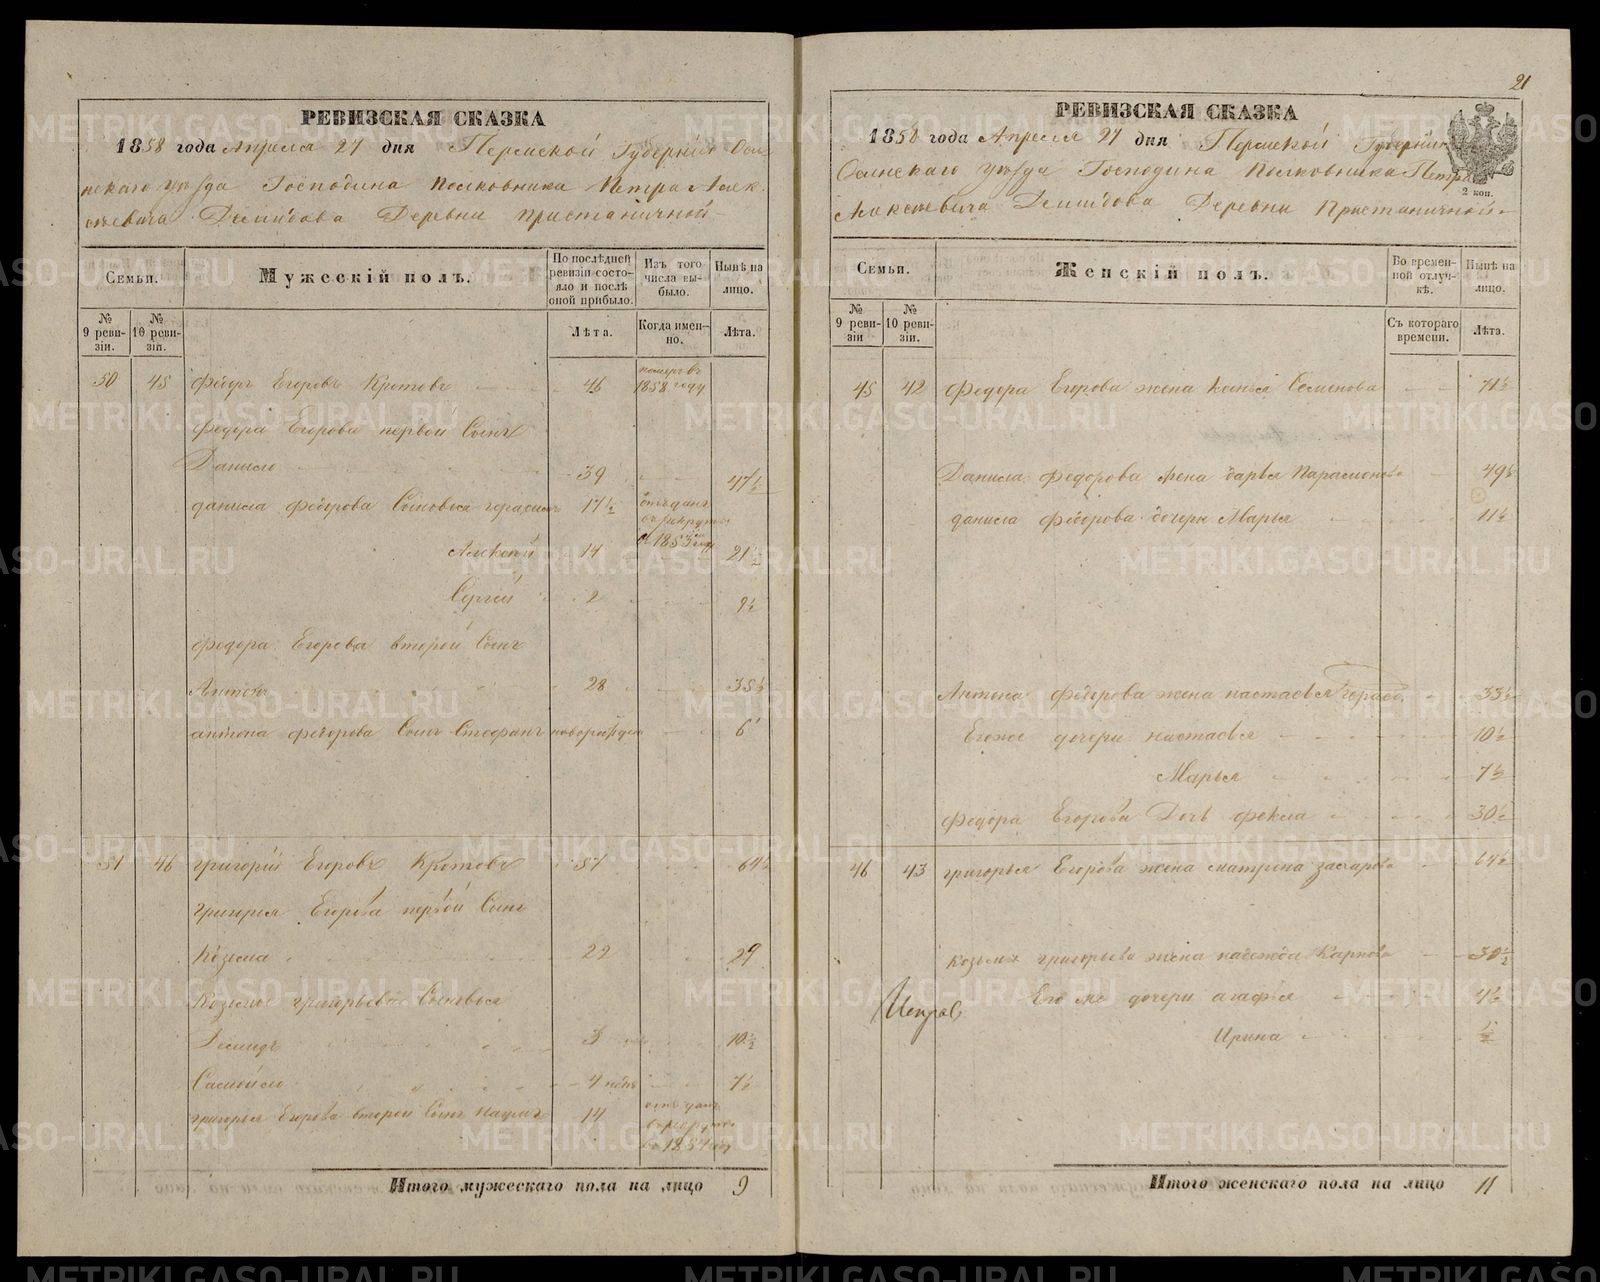 РЕВИЗСКАЯ СКАЗКА
1858 года Апреля 27 дня Пермской Губернiи Осин-
скаго уѣзда Господина Полковника Петра Алек-
сѣевича Демидова Деревни Пристаничной
Семьи.
Мужескiй полъ.
По послѣдней ревизiи состояло и послѣ оной прибыло.
Изъ того числа выбыло.
Нынѣ на лицо.
№ 9 ревизiи.
№ 10 ревизiи.
Лѣта.
Когда именно.
Лѣта.
50 45 Федоръ Егоровъ Кротовъ 46 померъ въ 1858 году
Федора Егорова первой Сынъ
Данило 39 47½
Данила Федорова Сыновья Герасимъ 17½ отъданъ въ рекруты въ 1853 году
Алексей 14 21½
Сергей 2 9½
Федора Егорова второй Сынъ
Антонъ 28 35½
Антона Федорова Сынъ Стефанъ новорожденъ 6
51 46 Григорiй Егоровъ Кротовъ 57 64½
Григорья Егорова первой Сынъ
Козьма 22 29
Козьмы Григорьева Сыновья
Демидъ 3 10½
Самойло 7½
Григорья Егорова второй Сынъ Наумъ 14 отъданъ в рекруты в 1854 году
Итого мужескаго пола на лицо 9
21
РЕВИЗСКАЯ СКАЗКА
1858 года Апреля 27 дня Пермской Губернiи
Осинскаго уѣзда Господина Полковника Петра
Алексѣевича Демидова Деревни Пристаничной
2 коп.
Семьи.
Женскiй полъ.
Во временной отлучкѣ.
Нынѣ на лицо.
№ 9 ревизiи
№ 10 ревизiи.
Съ котораго времени.
Лѣта.
45 42 Федора Егорова жена Семенова 71½
Данила Федорова жена Дарья Парамонова 49½
Данила Федорова дочери Марья 11½
Антона Федорова жена Настасья 33½
Егоже дочери Настасья 10½
Марья 7½
Федора Егорова Дочь Фекла 30½
46 43 Григорья Егорова жена Матрона Захарова 64½
Козьмы Григорьева жена Надежда Карпова 30½
Его же дочери Агафья 4½
Ирина ½
Итого женскаго пола на лицо 11
METRIKI.GASO-URAL.RU